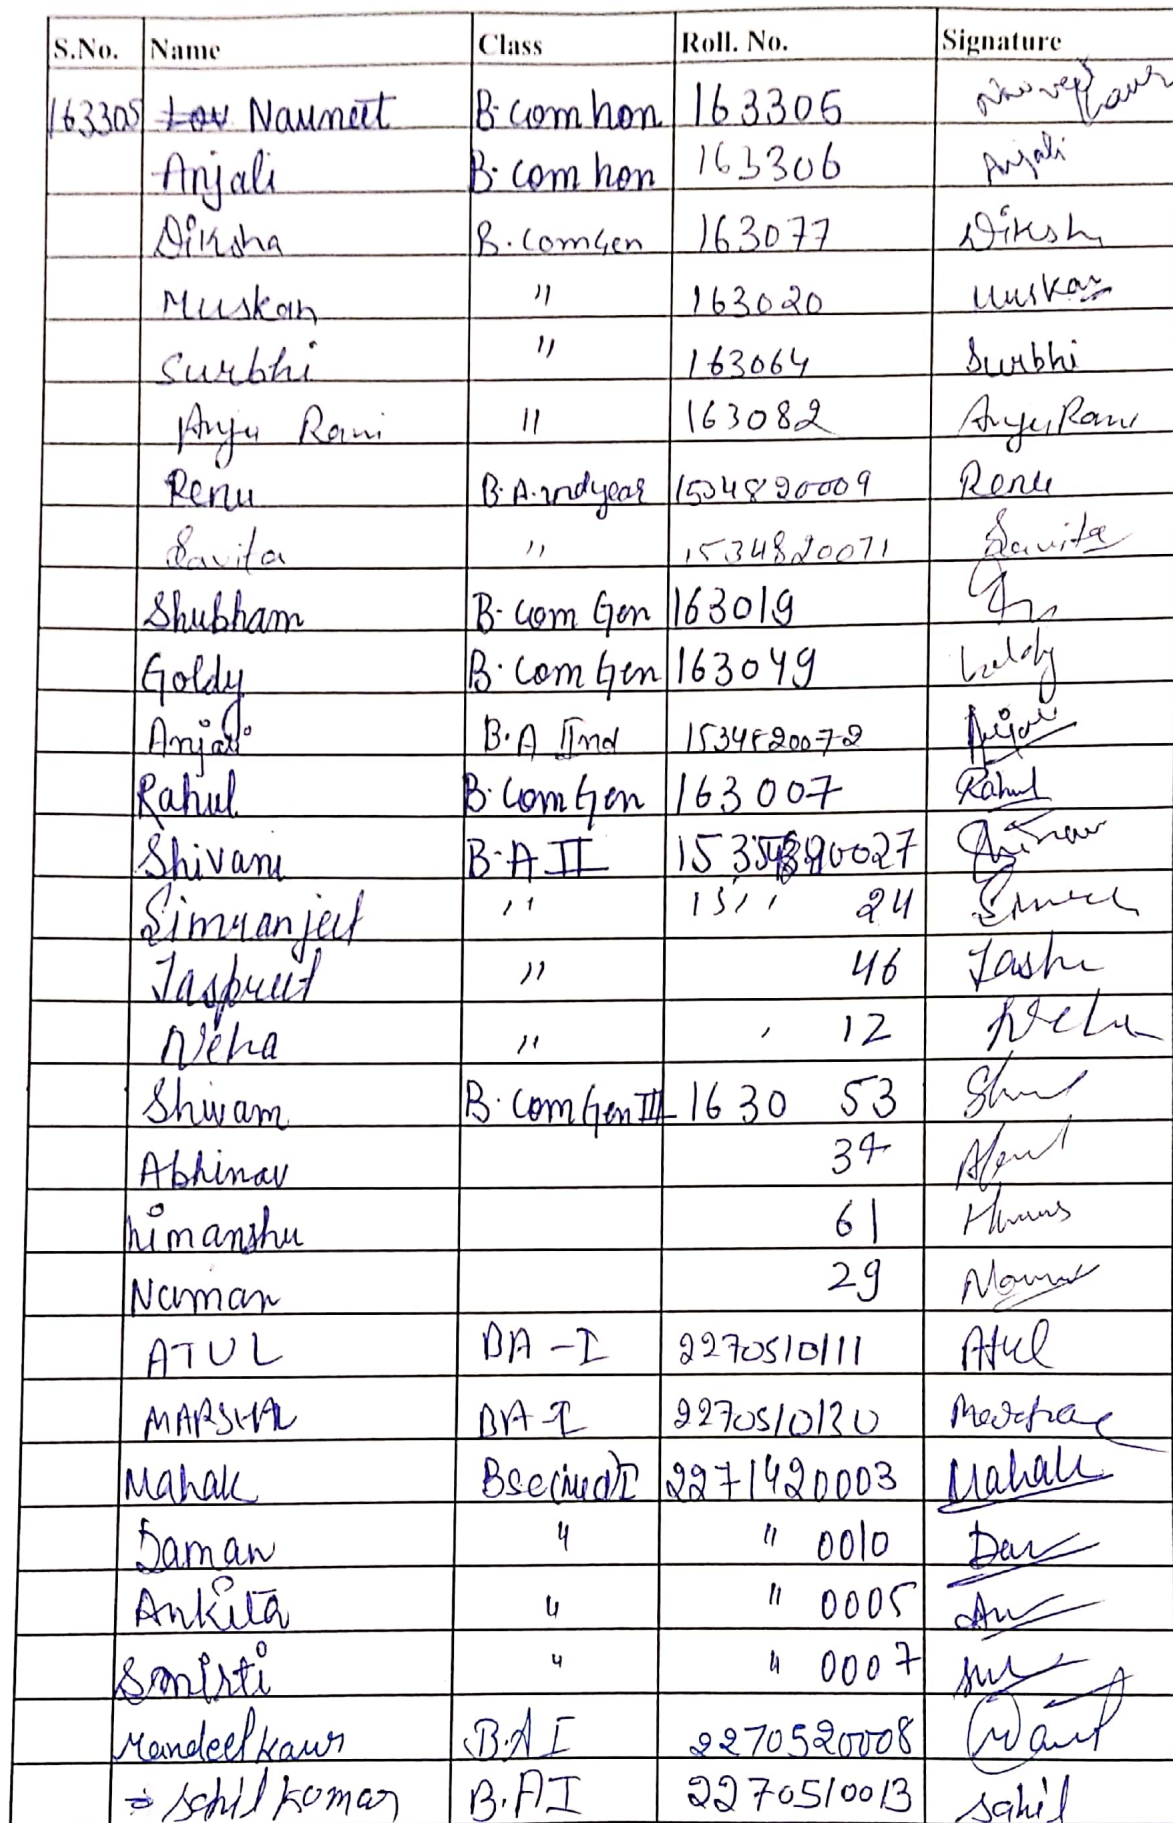 S.No. Name Class Roll. No. Signature
163305 Navneet B.com hon 163305
Anjali B.com hon 163306 Anjali
Diksha B.com Gen 163077 Diksh
Muskan " 163020 Muskan
Surbhi " 163064 Surbhi
Anju Rani " 163082 Anju Rani
Renu B.A. IInd year 1534820009 Renu
Savita " 1534820071 Savita
Shubham B.com Gen 163019
Goldy B.com Gen 163049 Goldy
Anjali B.A IInd 1534820072 Anjali
Rahul B.com Gen 163007 Rahul
Shivani B.A II
Simranjeet " 15 " 24
Jaspreet " 46 Jash
Neha " 12 Neha
Shivam B.com Gen III 1630 53
Abhinav 34
himanshu 61
Naman 29
ATUL BA-I 2270510111 Atul
MARSHAL BA-I 2270510130
Mahak 2271420003 Mahak
Daman " " 0010
Ankita " " 0005
Smirsti " " 0007
Mandeep kaur B.A I 2270520008
Sahil kumar B.A I 2270510013 Sahil